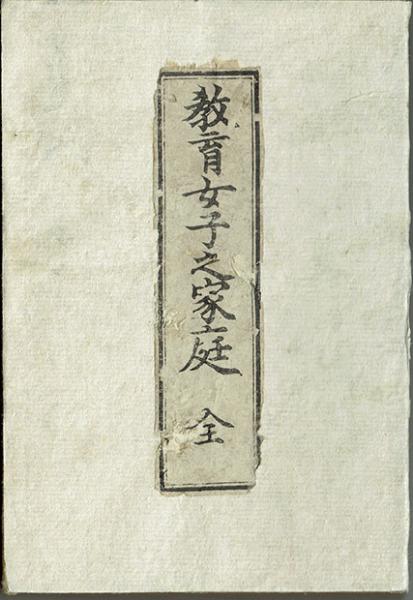 教育女子之家庭 全